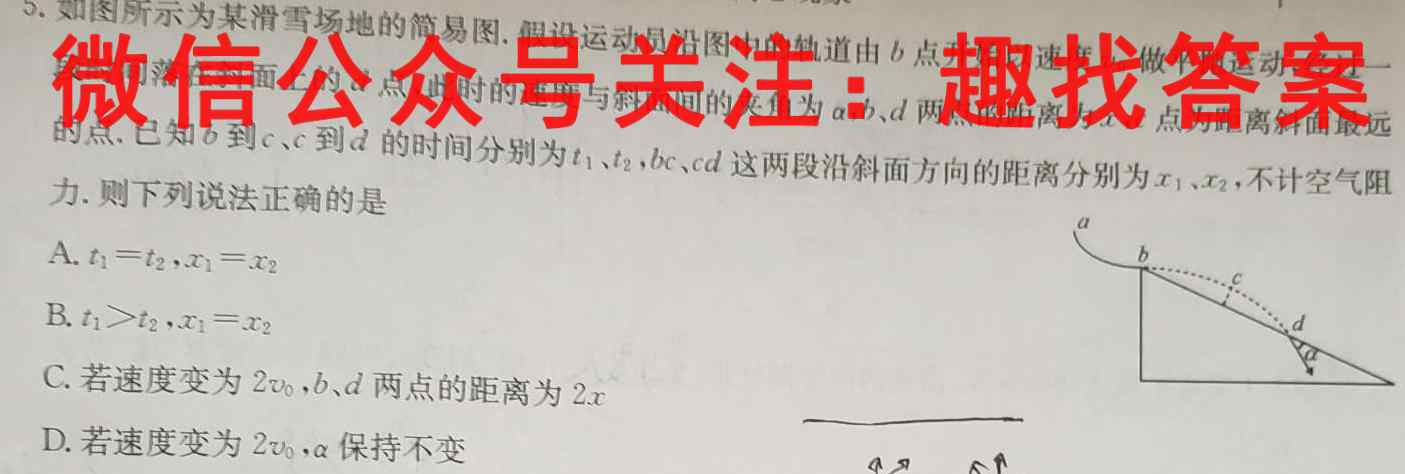 5. 如图所示为某滑雪场地的简易图. 假设运动员沿图中的轨道由 b 点开始以速度 做平抛运动
落在斜面上的 d 点,此时的速度与斜面间的夹角为 α.b、d 两点的距离为 x 点为距离斜面最远
微信公众号关注：趣找答案
的点.已知 b 到 c、c 到 d 的时间分别为 t₁、t₂,bc、cd 这两段沿斜面方向的距离分别为 x₁、x₂,不计空气阻
力. 则下列说法正确的是
A. t₁=t₂,x₁=x₂
B. t₁>t₂,x₁=x₂
C. 若速度变为 2v₀,b、d 两点的距离为 2x
D. 若速度变为 2v₀,α 保持不变
a
b
c
d
α